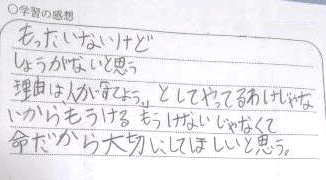 ○学習の感想
もったいないけど
しょうがないと思う
理由は、人が育てよう。としてやってるわけじゃな
いからもうける もうけない じゃなくて
命だから大切にしてほしいと思う。